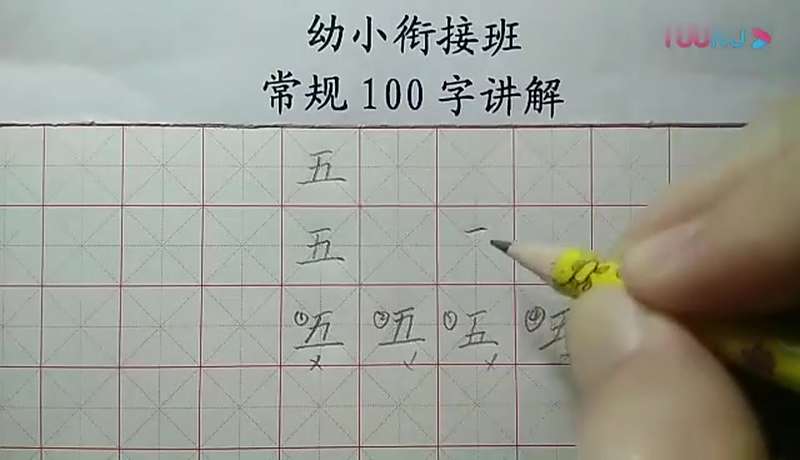 幼小衔接班
常规100字讲解
五
五 一
①五 ②五 ③五 ④五